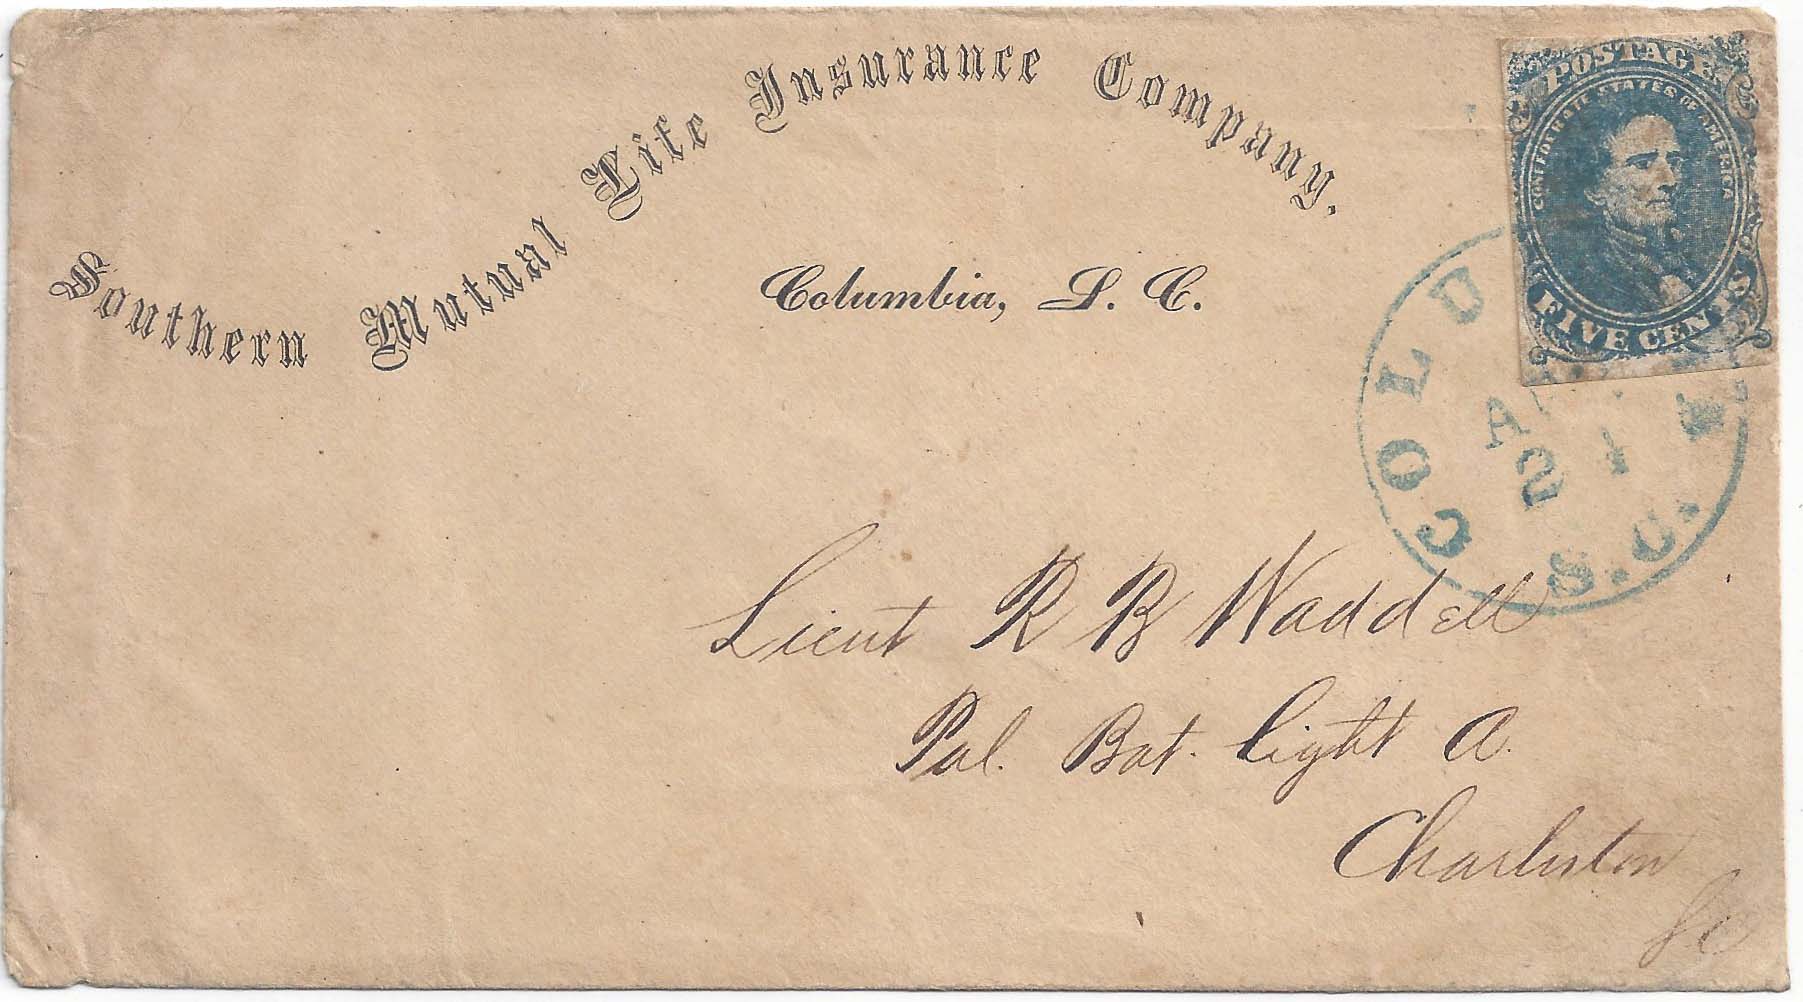 Southern Mutual Life Insurance Company,
Columbia, S. C.
POSTAGE
CONFEDERATE STATES OF AMERICA
FIVE CENTS
COLU
21
S.C.
Lieut R B Waddell
Pal. Bat. Light A.
Charleston
SC